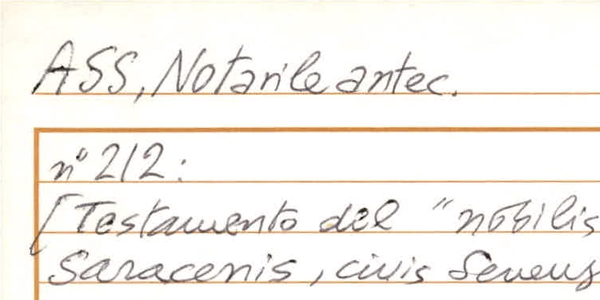 ASS, Notarile antec.
n° 212:
[Testamento del "nobilis
Saracenis, civis Senens